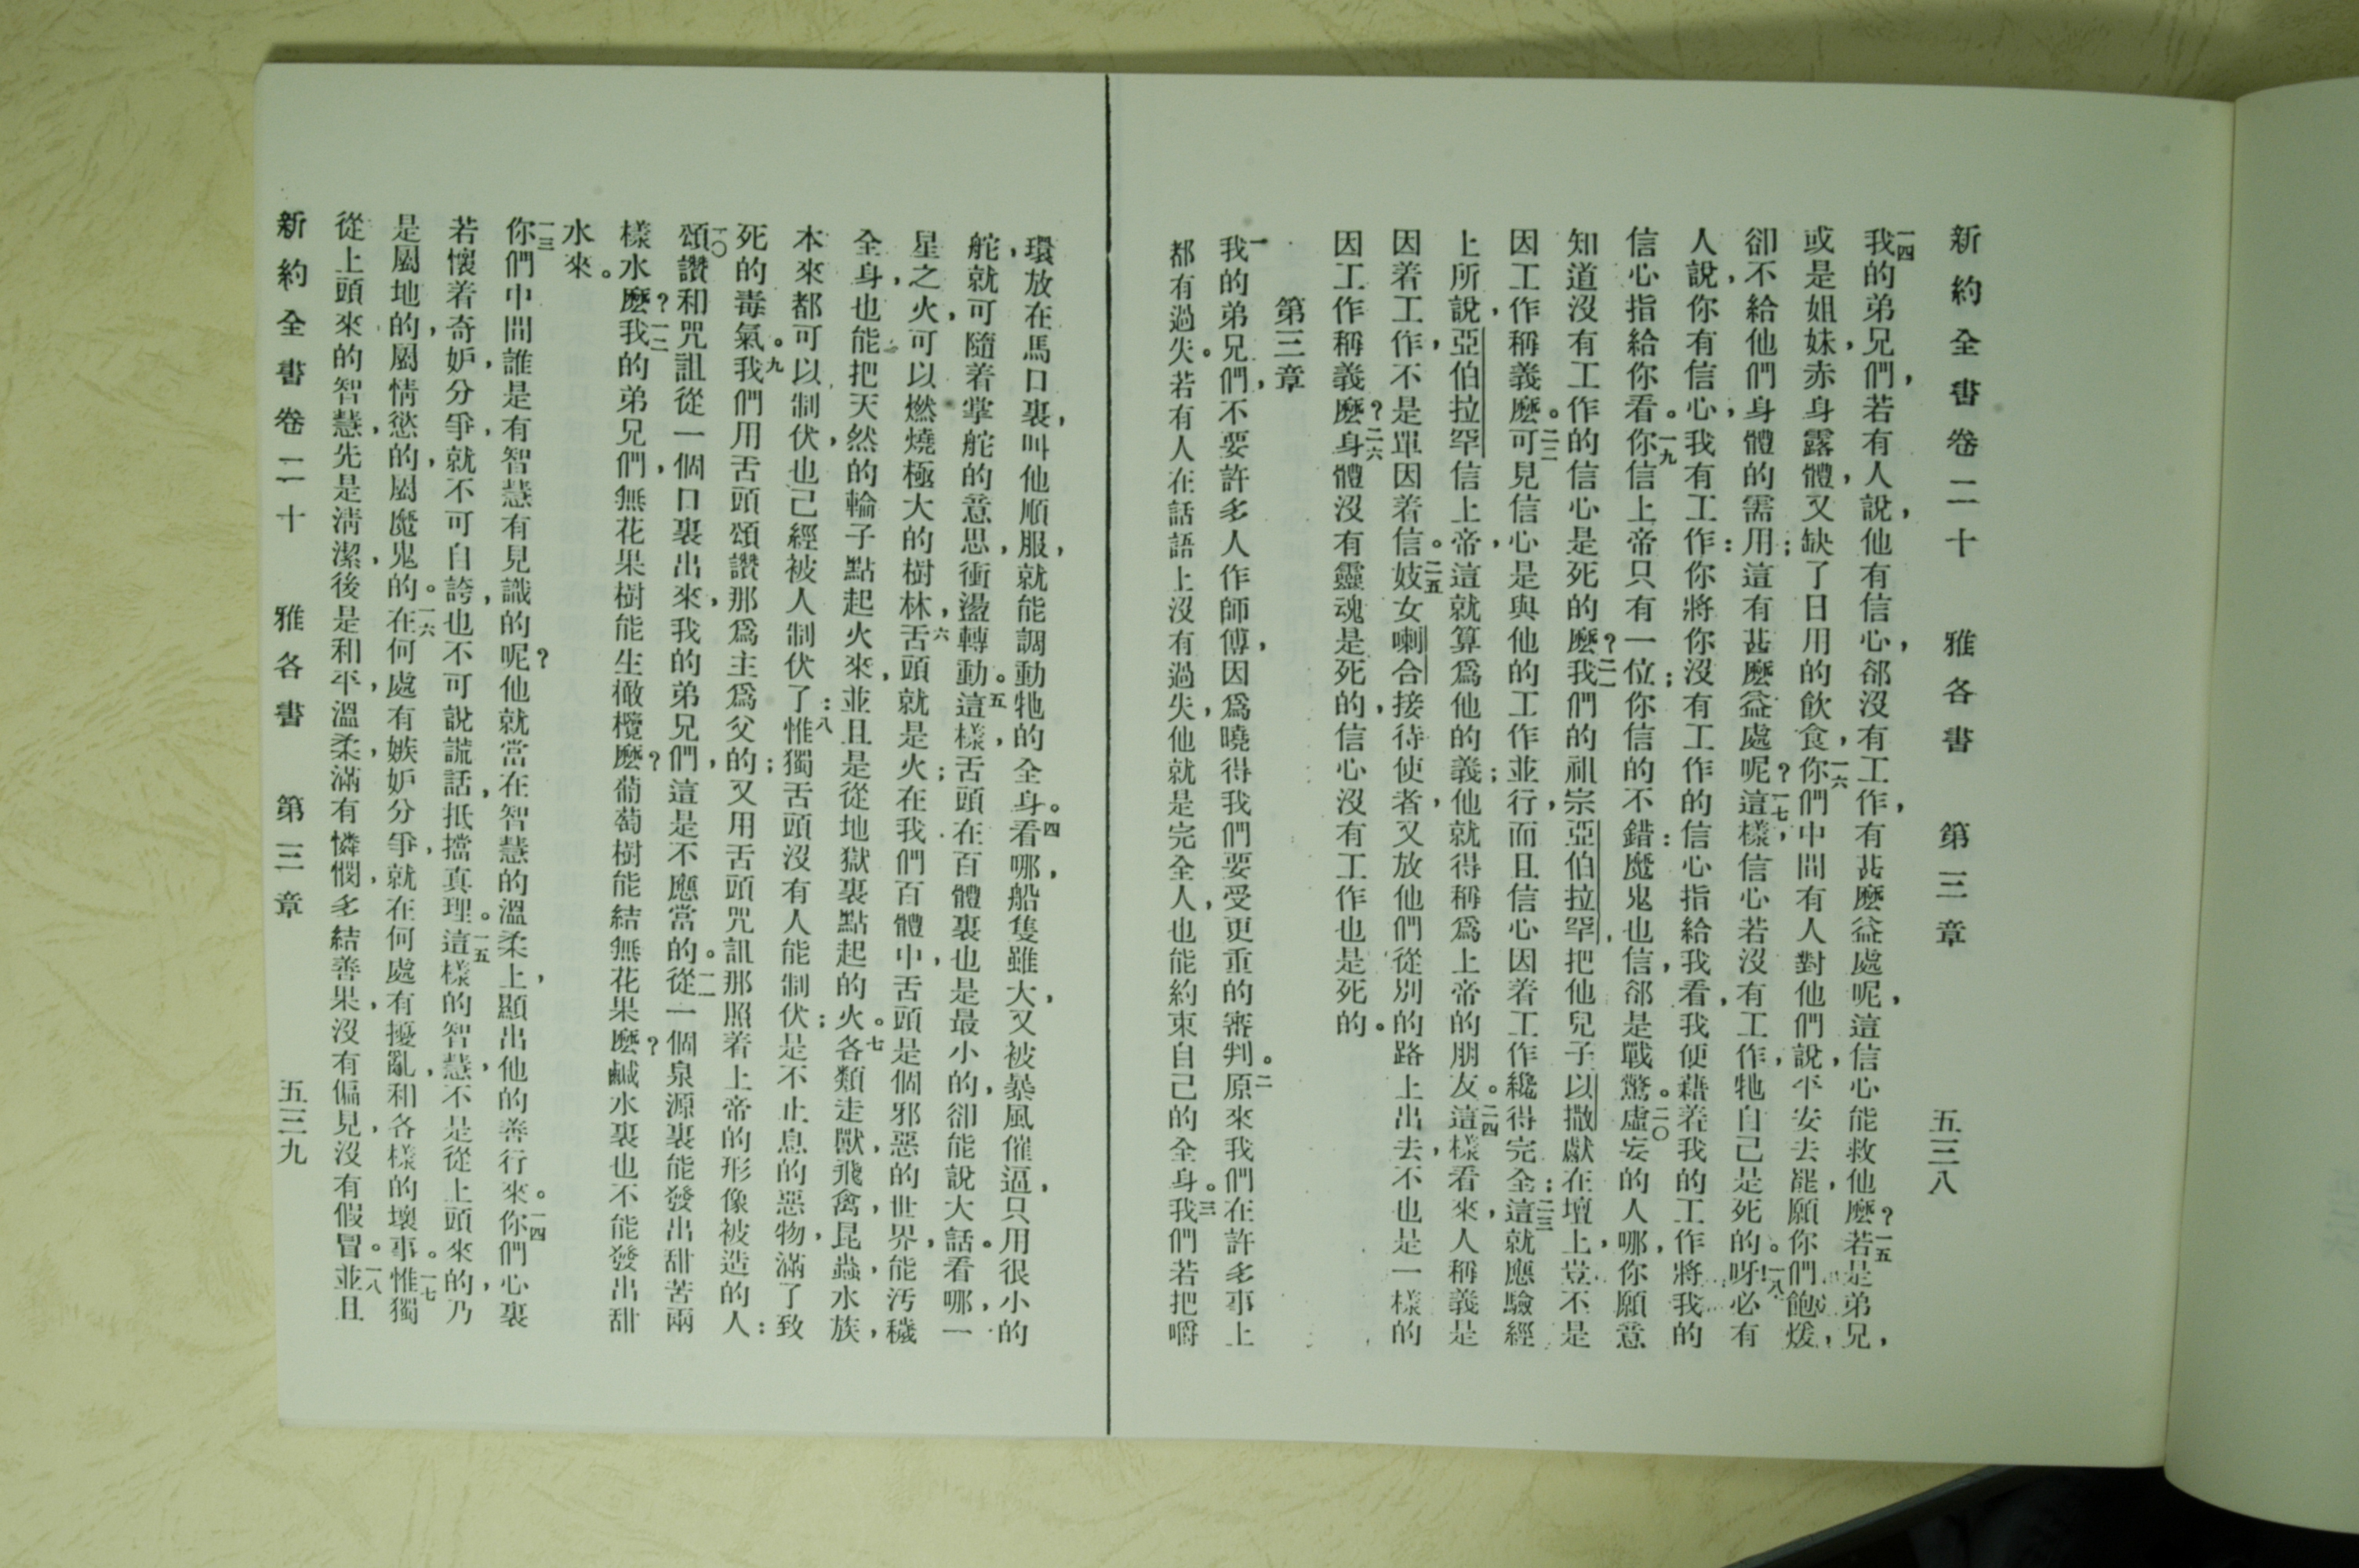 新約全書卷二十　雅各書　第三章　五三八
一四我的弟兄們，若有人說，他有信心，郤沒有工作，有甚麼益處呢，這信心能救他麼？一五若是弟兄，
或是姐妹，赤身露體，又缺了日用的飲食，一六你們中間有人對他們說，平安去罷，願你們飽煖，
卻不給他們身體的需用；這有甚麼益處呢？一七這樣，信心若沒有工作，牠自己是死的。一八呀！必有
人說，你有信心，我有工作：你將你沒有工作的信心指給我看，我便藉着我的工作將我的
信心指給你看。一九你信上帝只有一位；你信的不錯：魔鬼也信，郤是戰驚。二〇虛妄的人哪，你願意
知道沒有工作的信心是死的麼？二一我們的祖宗亞伯拉罕，把他兒子以撒獻在壇上，豈不是
因工作稱義麼。二二可見信心是與他的工作並行，而且信心因着工作纔得完全；二三這就應驗經
上所說，亞伯拉罕信上帝，這就算爲他的義；他就得稱爲上帝的朋友。二四這樣看來，人稱義是
因着工作，不是單因着信。二五妓女喇合接待使者，又放他們從別的路上出去，不也是一樣的
因工作稱義麼？二六身體沒有靈魂是死的，信心沒有工作也是死的。
第三章
一我的弟兄們，不要許多人作師傅，因爲曉得我們要受更重的審判。二原來我們在許多事上
都有過失。若有人在話語上沒有過失，他就是完全人，也能約束自己的全身。三我們若把嚼
環放在馬口裏，叫他順服，就能調動牠的全身。四看哪，船隻雖大，又被暴風催逼，只用很小的
舵，就可隨着掌舵的意思，衝盪轉動。五這樣，舌頭在百體裏也是最小的，卻能說大話。看哪，一
星之火，可以燃燒極大的樹林，六舌頭就是火；在我們百體中，舌頭是個邪惡的世界，能汚穢
全身，也能把天然的輪子點起火來，並且是從地獄裏點起的火。七各類走獸，飛禽，昆蟲，水族，
本來都可以制伏，也己經被人制伏了：八惟獨舌頭沒有人能制伏；是不止息的惡物，滿了致
死的毒氣。九我們用舌頭頌讚那爲主爲父的；又用舌頭咒詛那照着上帝的形像被造的人：
一〇頌讚和咒詛從一個口裏出來，我的弟兄們，這是不應當的。一一從一個泉源裏能發出甜苦兩
樣水麼？一二我的弟兄們，無花果樹能生橄欖麼？葡萄樹能結無花果麼？鹹水裏也不能發出甜
水來。
一三你們中間誰是有智慧有見識的呢？他就當在智慧的溫柔上，顯出他的善行來。一四你們心裏
若懷着奇妒，分爭，就不可自誇，也不可說謊話，抵擋真理。一五這樣的智慧，不是從上頭來的，乃
是屬地的，屬情慾的，屬魔鬼的。一六在何處有嫉妒分爭，就在何處有擾亂，和各樣的壞事。一七惟獨
從上頭來的智慧，先是淸潔，後是和平，溫柔，滿有憐憫，多結善果，沒有偏見，沒有假冒。一八並且
新約全書卷二十　雅各書　第三章　五三九